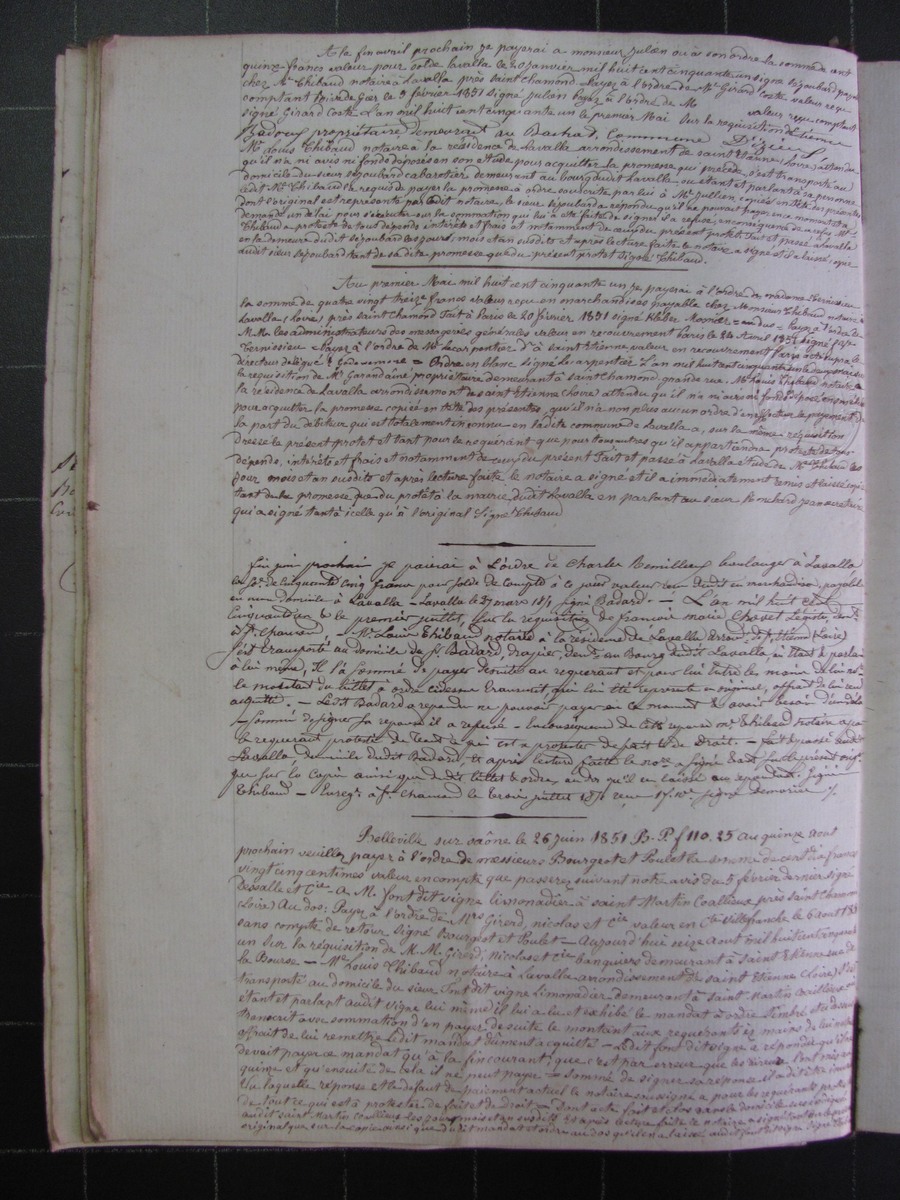 A la fin avril prochain je payerai a monsieur Julien ou à son ordre la somme de cent
quinze francs valeur pour solde Lavalla le 20 janvier mil huit cent cinquante un signé Sejoubard payable
chez Mr Thibaud notaire à Lavalla près Saint Chamond Payez à l'ordre de Mr Girard Coste valeur reçu
comptant Rive de Gier le 3 février 1851 signé Julien Payez à l'ordre de M valeur reçu comptant
signé Girard Coste L'an mil huit cent cinquante un le premier Mai Sur la requisition Etienne
Badoux propriétaire demeurant au Bachat, Commune D'Izieux
Me Louis Thibaud notaire a la résidence de Lavalla arrondissement de Saint Etienne (Loire) attendu
qu'il n'a ni avis ni fonds déposés en son étude pour acquitter la promesse qui précède, s'est transporté au
domicile du sieur Sejoubard cabaretier demeurant au bourg dudit Lavalla où étant et parlant à sa personne
ledit Me Thibaud l'a requis de payer la promesse à ordre souscrite par lui à Mr Jullien, copiée en tête des présentes
dont l'original est représenté par ledit notaire, le sieur Sejoubard a répondu qu'il ne pouvait payer en ce moment et a
demandé un délai pour s'exécuter sur la sommation qui lui a été faite de signer il a refusé, en conséquence de ce refus Me
Thibaud a protesté de tous dépends intérêts et frais et notamment de ceux du présent protêt Fait et passé à Lavalla
en la demeure dudit Sejoubard les jours, mois et an susdits et après lecture faite le notaire a signé et il a laissé copie
audit sieur Sejoubard tant de sa dite promesse que du présent protêt signé Thibaud.
Au premier Mai mil huit cent cinquante un je payerai à l'ordre de madame Vernissieu
la somme de quatre vingt treize francs valeur reçu en marchandises payable chez Monsieur Thibaud notaire à
Lavalla (Loire), près Saint Chamond Fait à Paris le 20 février 1851 signé = au dos = Payez à l'ordre de
M.M. les administrateurs des messageries générales valeur en recouvrement Paris le 24 Avril 1851 signé
Vernissieu Payez à l'ordre de Mr Lecarpentier Dr à Saint Etienne valeur en recouvrement Paris
directeur délégué = Ordre en blanc signé Lecarpentier L'an mil huit cent cinquante un le
la requisition de Mr Garandaine propriétaire demeurant à Saint Chamond grande rue Me Louis Thibaud notaire à
la résidence de Lavalla arrondissement de Saint Etienne (Loire) attendu qu'il n'a ni avis ni fonds déposé en son étude
pour acquitter la promesse copiée en tête des présentes, qu'il n'a non plus aucun ordre d'en effectuer le payement de
la part du débiteur qui est totalement inconnu en ladite commune de Lavalla a, sur la même réquisition
dressé le présent protêt et tant pour le requérant que pour tous autres qu'il appartiendra protesté de tous
dépends, intérêts et frais et notamment de ceux du présent Fait et passé à Lavalla étude de Me Thibaud les
jour mois et an susdits et après lecture faite le notaire a signé et il a immédiatement remis et laissé copie
tant de la promesse que du protêt à la mairie dudit Lavalla en parlant au sieur secrétaire
qui a signé tant à icelle qu'à l'original Signé Thibaud
Fin juin prochain je paierai à l'ordre de Charles Remillieux boulanger à Lavalla
la se de Cinquante Cinq francs pour solde de Compte à ce jour valeur reçu dudit en marchandise, payable
en mon domicile à Lavalla – Lavalla le 27 mars 1851 signé Badard. – L'an mil huit cent
Cinquante un & le premier juillet, sur la réquisition de françois marie Chovet Légiste, demt
à St Chamond, – Me Louis Thibaud notaire à la résidence de Lavalla Arrondt de St Etienne (Loire)
s'est transporté au domicile du Sr Badard, drapier, demt au Bourg dudit Lavalla, où étant & parlant
à lui même, Il l'a sommé de payer de suite au requerant et pour lui entre les mains de lui notre
le montant du billet à ordre cidessus transcrit, qui lui a été représenté en original, offrant de lui rendre
acquitté. – Ledit Badard a répondu ne pouvoir payer en ce moment & avoir besoin d'un délai
– Sommé de signer sa réponse il a refusé – En conséquence de cette réponse Me Thibaud notaire a pour
le requerant protesté de tout ce qui est à protester de fait & de Droit. – Fait & passé audit
Lavalla, domicile dudit Badard, Et après lecture faite le notre a signé tant sur le présent orig.
que sur la copie ainsi que dudit billet à ordre, au dos qu'il en a laissé au répondant. Signé
Thibaud – Enreg. à St Chamond le trois juillet 1851 reçu
Belleville sur saône le 26 juin 1851 B. P. f 110.25 au quinze aout
prochain veuillez payer à l'ordre de messieurs Bourgeot et Poulet la somme de cent dix francs
vingt cinq centimes valeur en compte que passerez suivant notre avis du 5 février dernier signé
Dessalle et Cie – A M. font dit vigne limonadier à saint Martin Coallieux près Saint Chamond
(Loire) Au dos: Payez à l'ordre de Mrs Girerd, nicolas et Cie valeur en Cte Villefranche le 6 aout 1851
sans compte de retour signé Bourgeot et Poulet – Aujourd'hui seize aout mil huit cent cinquante
un Sur la réquisition de M.M. Girerd, Nicolas et Cie banquiers demeurant à Saint Etienne rue de
la Bourse – Me Louis Thibaud notaire à Lavalla arrondissement de Saint Etienne (Loire) s'est
transporté au domicile du sieur font dit vigne limonadier demeurant à Saint Martin Coallieux où
étant et parlant audit Vigne lui même il lui a lu et exhibé le mandat à ordre timbré et ci dessus
transcrit avec sommation d'en payer de suite le montant aux requerants ès mains de lui notaire
offrant de lui remettre Ledit mandat dûment acquitté – Ledit font dit vigne a répondu qu'il ne
devait payer ce mandat qu'à la fin courant, que c'est par erreur que les tireurs l'ont mis au
quinze et qu'ensuite de cela il ne peut payer – sommé de signer sa réponse il a dit être
Vu laquelle réponse et le défaut de paiement actuel le notaire soussigné a pour les requerants protesté
de tout ce qui est à protester de fait et de droit – Dont acte fait et clos dans le domicile
audit Saint Martin Coallieux les jour mois et an susdits Et après lecture faite le notaire a signé tant sur le présent
original que sur la copie ainsi que dudit mandat et ordre au dos qu'il en a laissé audit font dit vigne signé Thibaud